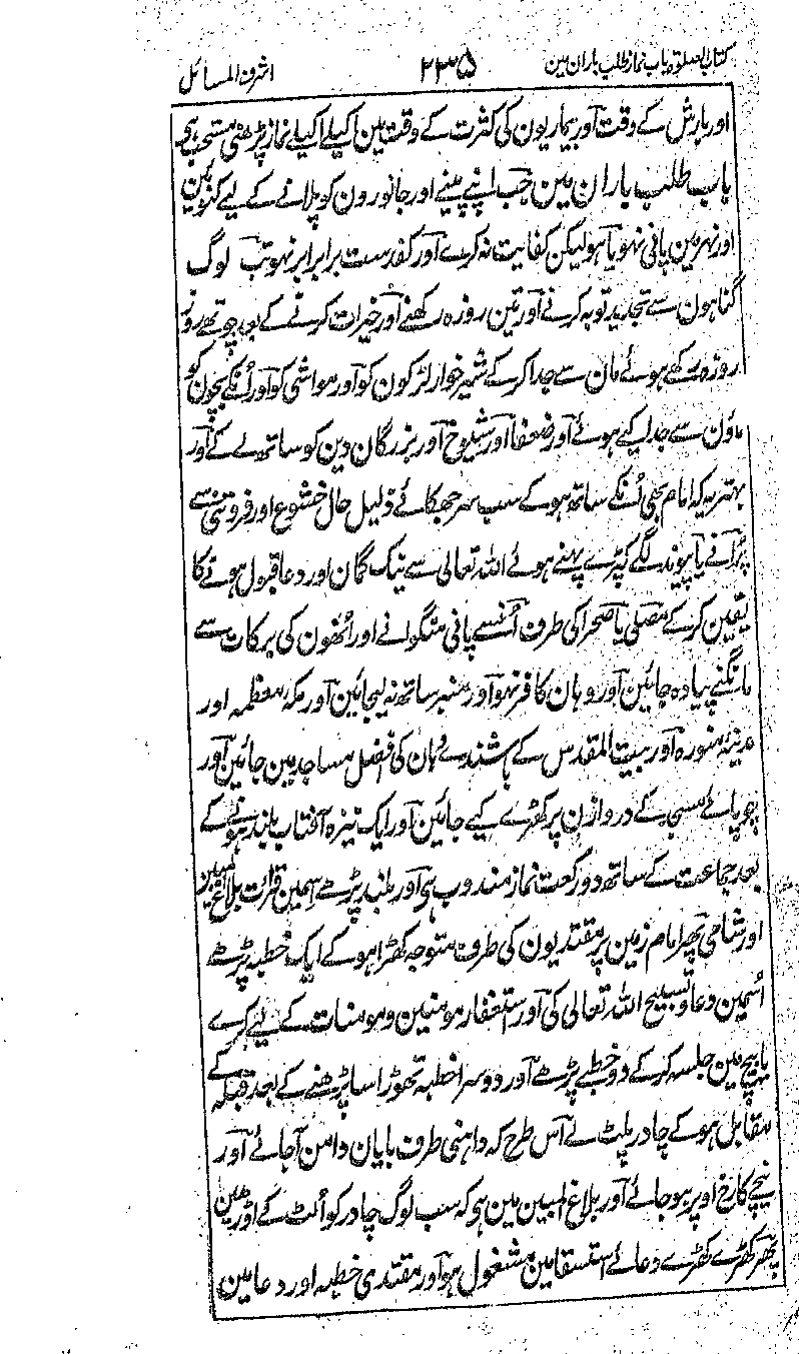 کتاب الصلوۃ باب نماز طلب باران مین ۲۳۵ اشرف المسائل
اور بارش کے وقت اور بیماریون کی کثرت کے وقت مین اکیلے اکیلے نماز پڑھنی مستحب ہی
باب طلب باران مین جب اپنے پینے اور جانورون کو پلانے کے لیے کنوئین
اور نہر مین پانی نہو یا ہو لیکن کفایت نہ کرے اور کفر ست برابر نہو تب لوگ
گناہون سے تجدید توبہ کرنے اور تین روزہ رکھنے اور خیرات کرنے کے بعد چوتھے روز
روزہ رکھے ہوئے مان سے جدا کرکے شیر خوار لڑکون کو اور مواشی کو اور اُنکے بچون کو
ماؤن سے جدا کیے ہوئے اور ضعفا اور شیوخ اور بزرگان دین کو ساتھ لے کے اور
بہتر یہ کہ امام بھی اُنکے ساتھ ہو کے سب سر جھکائے ذلیل حال خشوع اور فروتنی سے
پُرانے یا پیوند لگے کپڑے پہنے ہوئے اللہ تعالی سے نیک گمان اور دعا قبول ہونے کا
یقین کرکے مصلی یا صحرا کی طرف اُنسے پانی منگوانے اور اُنھون کی برکات سے
مانگنے پیادہ جائین اور وہان کافر نہو اور منبر ساتھ نہ لیجائین اور مکہ معظمہ اور
مدینہ منورہ اور بیت المقدس کے باشندے وہان کی افضل مساجد مین جائین اور
چوپائے مسجد کے دروازن پر کھڑے کیے جائین اور ایک نیزہ آفتاب بلند ہونے کے
بعد جماعت کے ساتھ دو رکعت نماز مندوب ہی اور بلند پڑھے اسمین قرائت بلاغ المبین
اور شامی پھر امام زمین پر مقتدیون کی طرف متوجہ کھڑا ہو کے ایک خطبہ پڑھے
اُسمین دعا و تسبیح اللہ تعالی کی اور استغفار مومنین و مومنات کے لیے کرے
یا بیچ مین جلسہ کرکے دو خطبے پڑھے اور دوسرا خطبہ تھوڑا سا پڑھنے کے بعد قبلہ کے
مقابل ہو کے چادر پلٹ لے اس طرح کہ داہنی طرف بایان دامن آجائے اور
نیچے کا رخ اوپر ہو جائے اور بلاغ المبین مین ہی کہ سب لوگ چادر کو اُلٹ کے اوڑھین
پھر کھڑے کھڑے دعائے استسقا مین مشغول ہو اور مقتدی خطبہ اور دعا مین